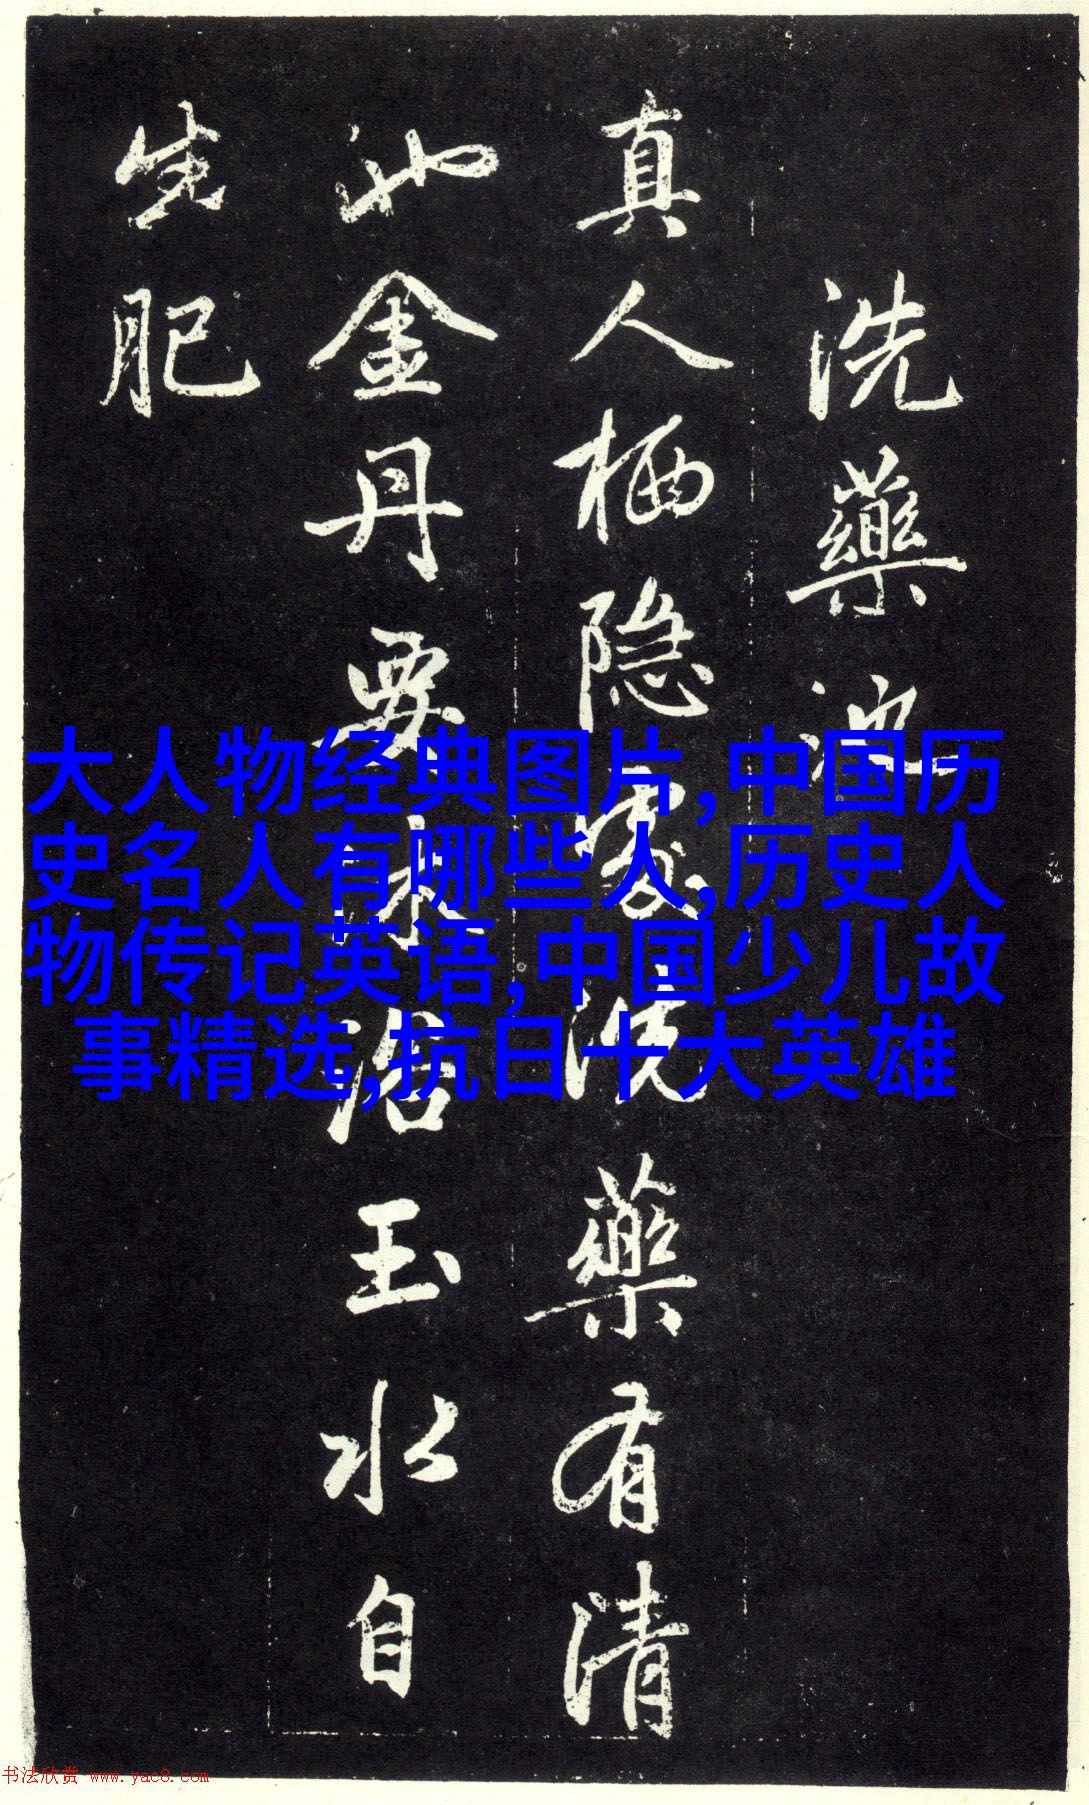 洗藥池
真人栖隐處洗藥有清
池金丹要沐浴玉水自
生肥
大人物经典图片,中国历
史名人有哪些人,历史人
物传记英语,中国少儿故
事精选,抗日十大英雄
书法欣赏 www.yac8.com